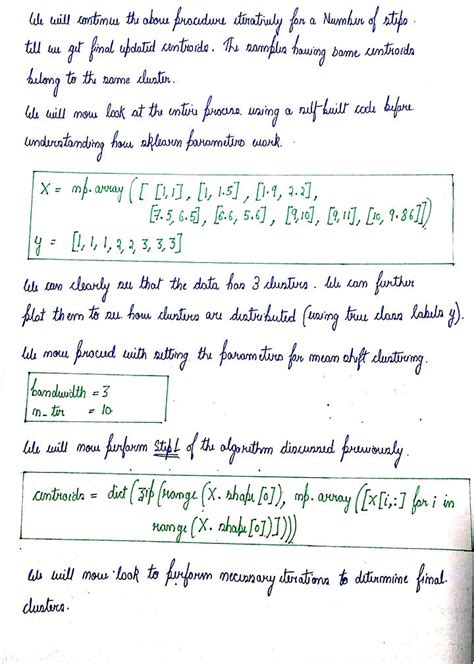 We will continue the above procedure iteratively for a Number of steps
till we get final updated centroids. The samples having same centroids
belong to the same cluster.
We will now look at the entire process using a self-built code before
understanding how sklearn parameters work.
X = np.array([ [1,1], [1, 1.5] , [1.9, 2.2],
[7.5, 6.5], [6.6, 5.6] , [9,10], [9,11], [10, 9.86]])
y = [1, 1, 1, 2, 2, 3, 3, 3]
We can clearly see that the data has 3 clusters. We can further
plot them to see how clusters are distributed (using true class labels y).
We now proceed with setting the parameters for mean shift clustering.
bandwidth = 3
n_iter = 10
We will now perform Step 1 of the algorithm discussed previously.
centroids = dict(zip(range(X.shape[0]), np.array([X[i,:] for i in
range(X.shape[0])])))
We will now look to perform necessary iterations to determine final
clusters.